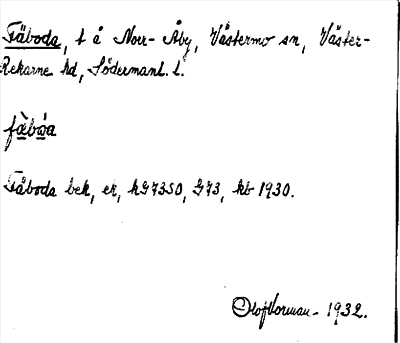 Fäboda, t å Norr-Åby, Västermo sn, Väster-
Rekarne hd, Södermanl. l.
fä̀bóa
Fäboda bek, ek, hG7350, G73, kb 1930.
Olof Norman - 1932.